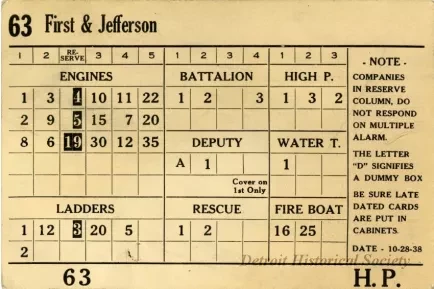 63 First & Jefferson
1 2 RE-SERVE 3 4 5 1 2 3 4 1 2 3
ENGINES BATTALION HIGH P.
1 3 4 10 11 22 1 2 3 1 3 2
2 9 5 15 7 20
8 6 19 30 12 35 DEPUTY WATER T.
A 1 1
Cover on
1st Only
LADDERS RESCUE FIRE BOAT
1 12 3 20 5 1 2 16 25
2
- NOTE -
COMPANIES
IN RESERVE
COLUMN, DO
NOT RESPOND
ON MULTIPLE
ALARM.
THE LETTER
"D" SIGNIFIES
A DUMMY BOX
BE SURE LATE
DATED CARDS
ARE PUT IN
CABINETS.
DATE - 10-28-38
Detroit Historical Society
63 H.P.